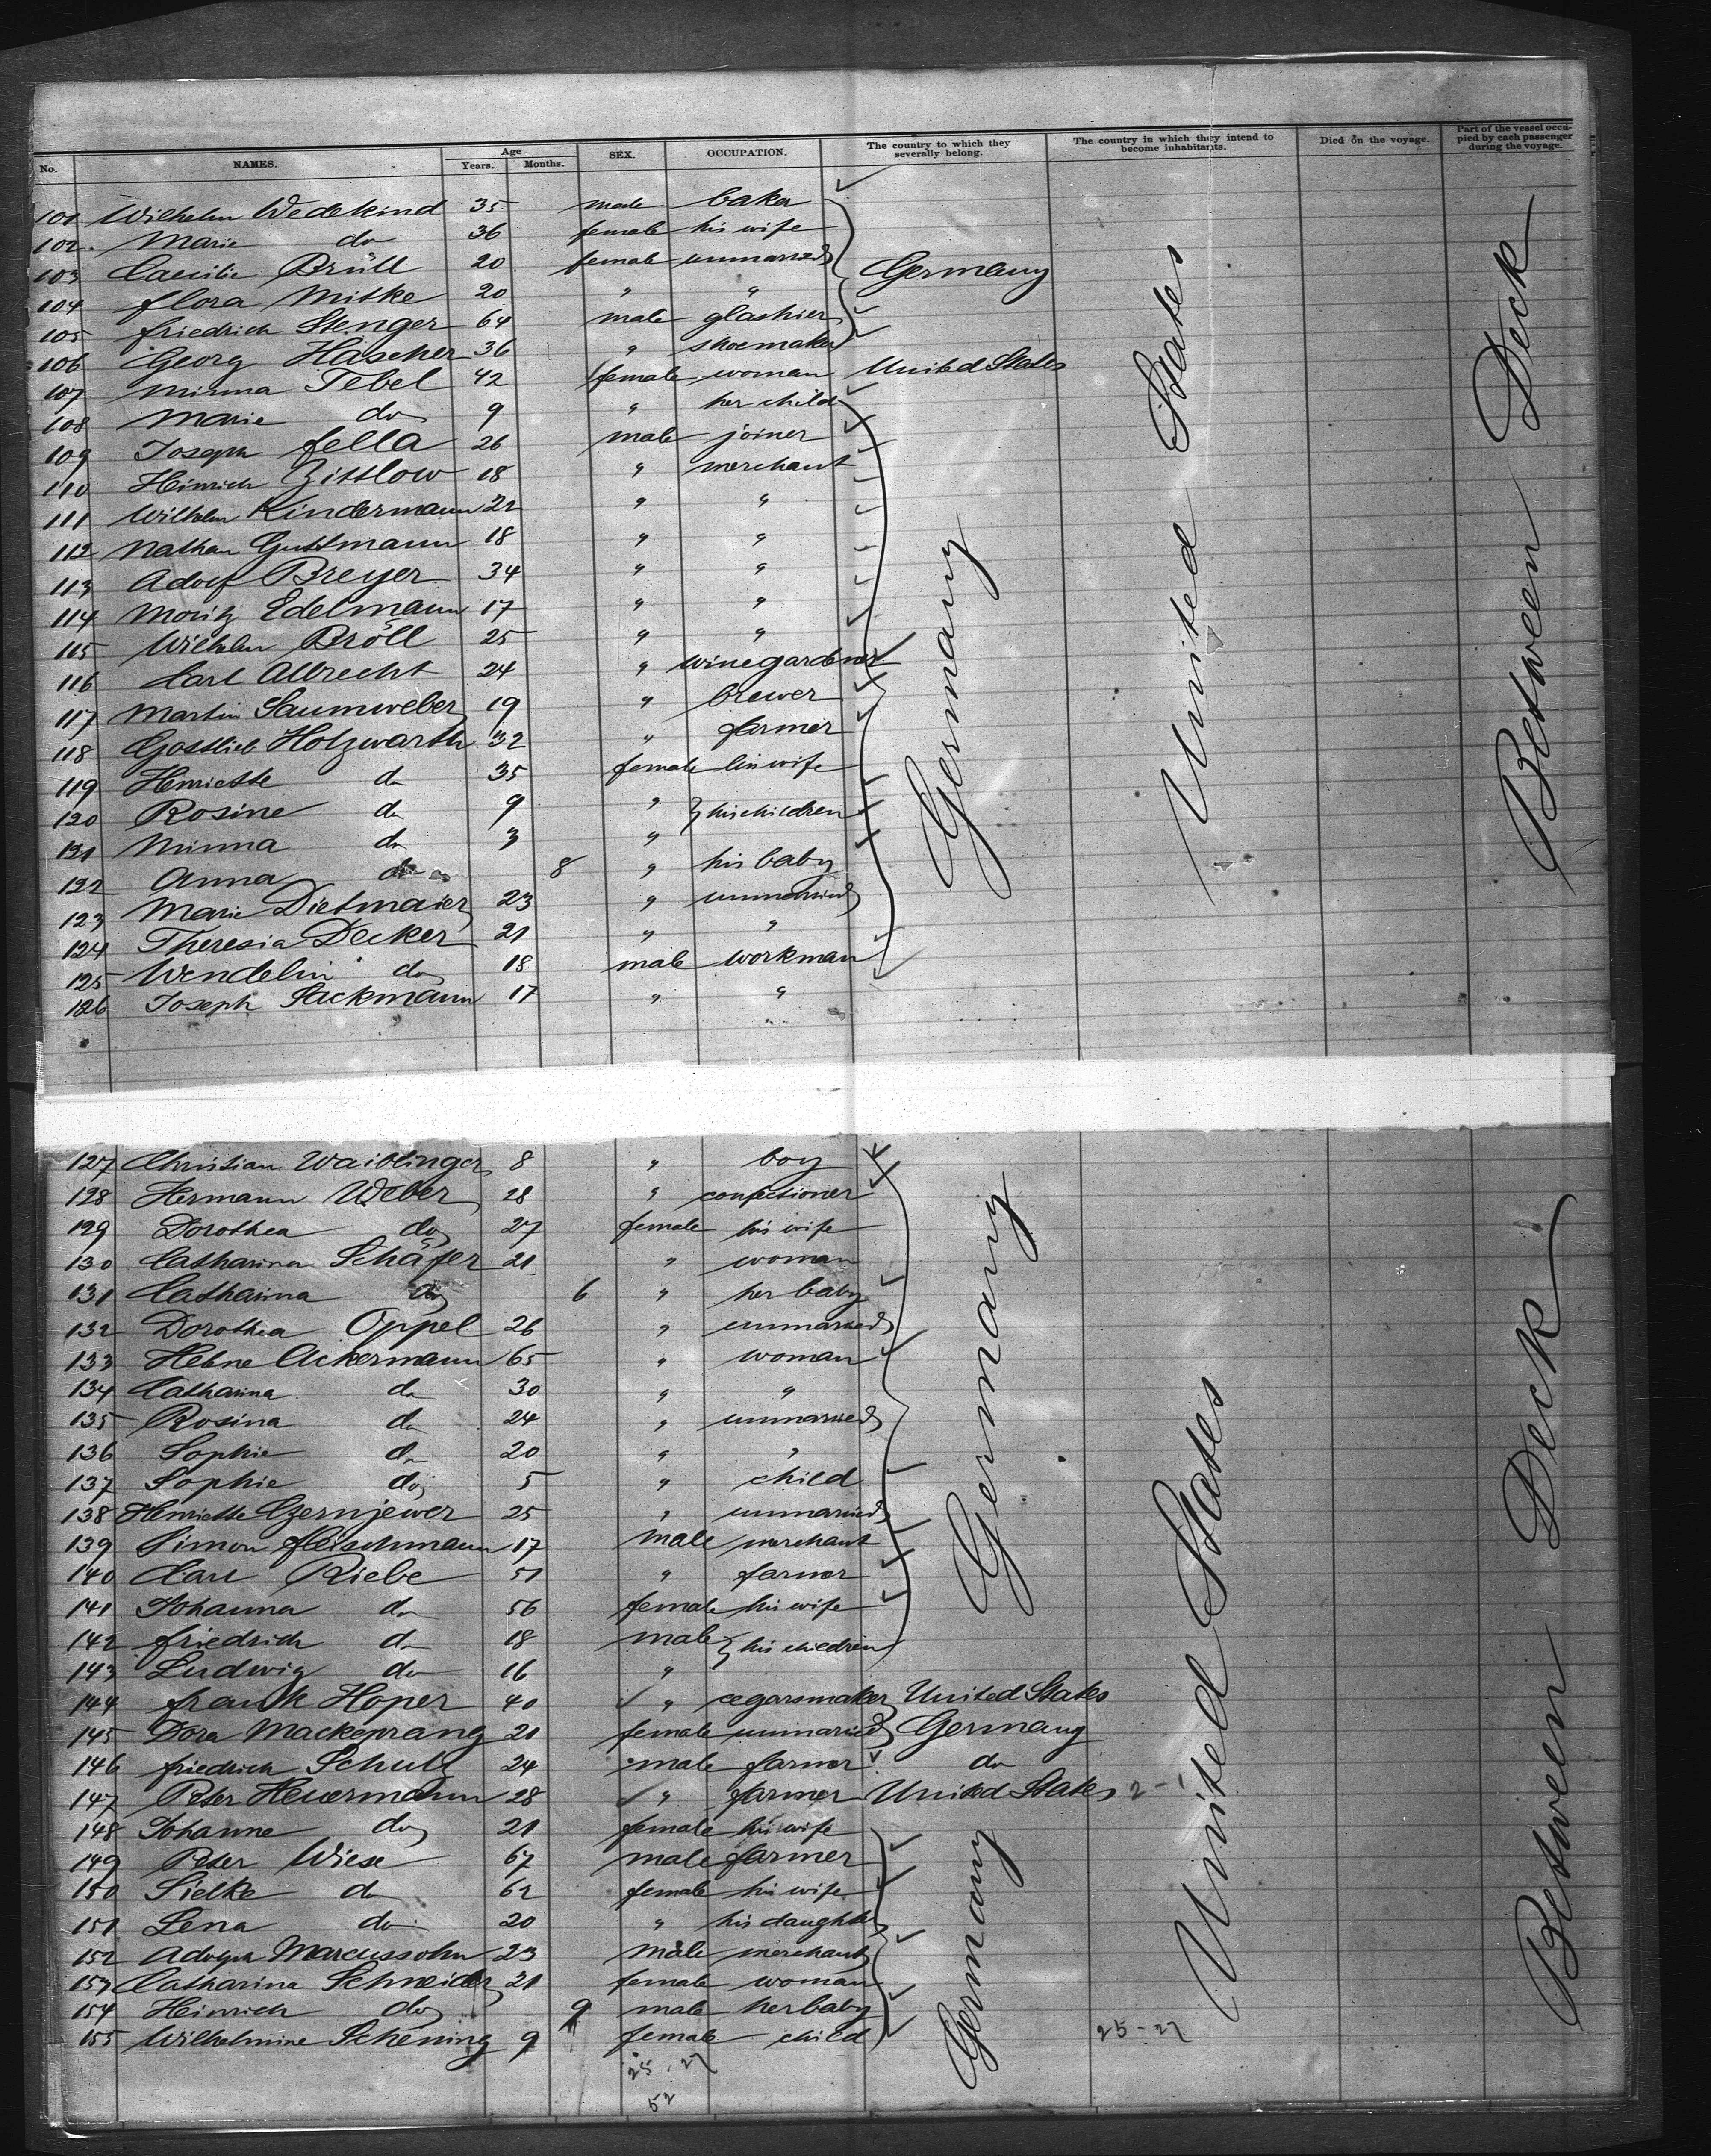 No. NAMES. Age Years. Months. SEX. OCCUPATION. The country to which they severally belong. The country in which they intend to become inhabitants. Died on the voyage. Part of the vessel occupied by each passenger during the voyage.
101 Wilhelm Wedekind 35 male baker
102. Marie do 36 female his wife
103 Caecilie Brüll 20 female unmarried Germany
104 Flora Mitke 20 " "
105 Friedrich Stenger 64 male glashier
106 Georg Hascher 36 " shoemaker
107 Minna Tebel 42 female woman United States
108 Marie do 9 " her child
109 Joseph Fella 26 male joiner
110 Heinrich Zittlow 18 " merchant
111 Wilhelm Kindermann 22 " "
112 Nathan Guttmann 18 " "
113 Adolf Breyer 34 " "
114 Moritz Edelmann 17 " "
115 Wilhelm Bröll 25 " "
116 Carl Albrecht 24 " winegardener
117 Martin Saumweber 19 " brewer
118 Gottlieb Holzwarth 32 " farmer
119 Henriette do 35 female his wife
120 Rosine do 9 " } his children
121 Minna do 3 "
122 Anna do 8 " his baby
123 Marie Dietmaier 23 " unmarried
124 Theresia Decker 21 " "
125 Wendelin do 18 male workman
126 Joseph Sackmann 17 " "
Germany
United States
Between Deck
127 Christian Waiblinger 8 " boy
128 Hermann Weber 28 " confectioner
129 Dorothea do 27 female his wife
130 Catharina Schäfer 21 " woman
131 Catharina do 6 " her baby
132 Dorothea Oppel 26 " unmarried
133 Helene Ackermann 65 " woman
134 Catharina do 30 " "
135 Rosina do 24 " unmarried
136 Sophie do 20 " "
137 Sophie do 5 " child
138 Henriette Czernjewer 25 " unmarried
139 Simon Fleischmann 17 male merchant
140 Carl Riebe 51 " farmer
141 Johanna do 56 female his wife
142 Friedrich do 18 male } his children
143 Ludwig do 16 "
144 Frank Hoper 40 " cegarsmaker United States
145 Dora Mackeprang 21 female unmarried Germany
146 Friedrich Schulz 24 male farmer do
147 Peter Heuermann 28 " farmer United States
148 Johanne do 21 female his wife
149 Peter Wiese 67 male farmer
150 Sielke do 62 female his wife
151 Lena do 20 " his daughter
152 Adolph Marcussohn 23 male merchant
153 Catharina Schneider 21 female woman
154 Heinrich do 9 male her baby
155 Wilhelmine Schening 9 female child
Germany
Germany
United States
Between Deck
25-27
25.27
52